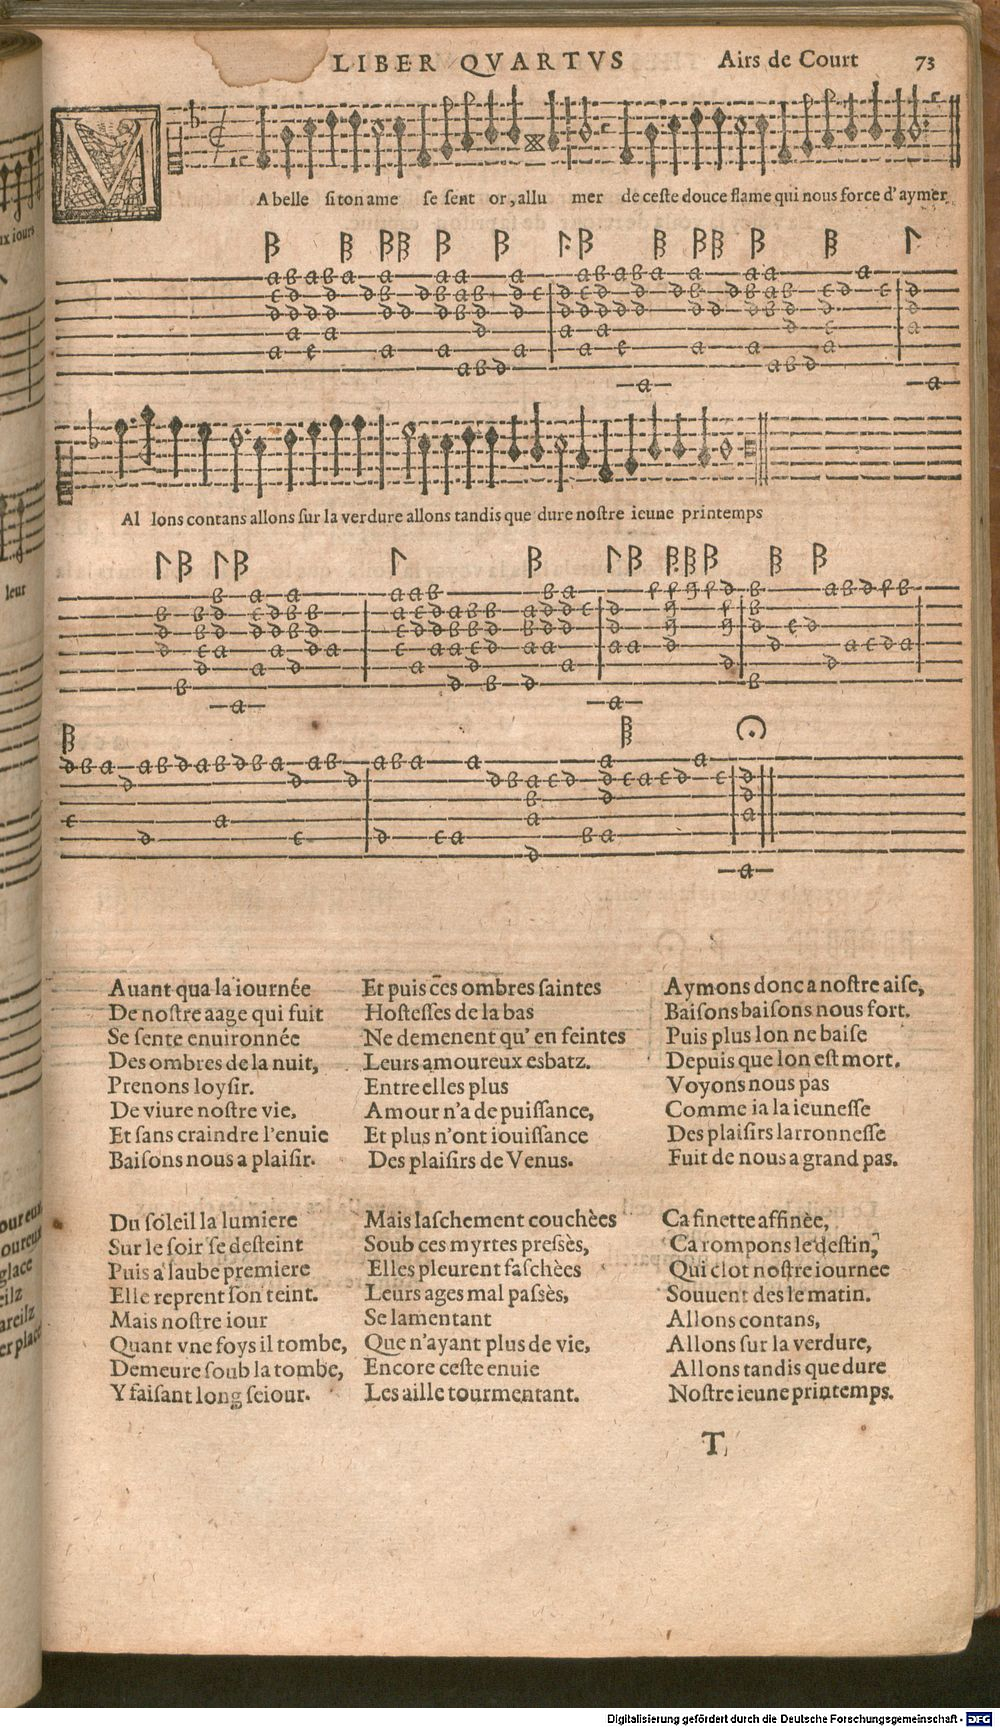 LIBER QVARTVS Airs de Court 73
MA belle si ton ame se sent or, allu mer de ceste douce flame qui nous force d'aymer
Al lons contans allons sur la verdure allons tandis que dure nostre ieune printemps
Auant qua la iournée
De nostre aage qui fuit
Se sente enuironnée
Des ombres de la nuit,
Prenons loysir.
De viure nostre vie,
Et sans craindre l'enuie
Baisons nous a plaisir.
Du soleil la lumiere
Sur le soir se desteint
Puis a laube premiere
Elle reprent son teint.
Mais nostre iour
Quant vne foys il tombe,
Demeure soub la tombe,
Y faisant long seiour.
Et puis ces ombres saintes
Hostesses de la bas
Ne demenent qu'en feintes
Leurs amoureux esbatz.
Entre elles plus
Amour n'a de puissance,
Et plus n'ont iouissance
Des plaisirs de Venus.
Mais laschement couchèes
Soub ces myrtes pressès,
Elles pleurent faschèes
Leurs ages mal passès,
Se lamentant
Que n'ayant plus de vie,
Encore ceste enuie
Les aille tourmentant.
Aymons donc a nostre aise,
Baisons baisons nous fort.
Puis plus lon ne baise
Depuis que lon est mort.
Voyons nous pas
Comme ia la ieunesse
Des plaisirs larronnesse
Fuit de nous a grand pas.
Ca finette affinèe,
Ca rompons le destin,
Qui clot nostre iournee
Souuent des le matin.
Allons contans,
Allons sur la verdure,
Allons tandis que dure
Nostre ieune printemps.
T
ux iours
leur
oureux
oureux
glace
eilz
areilz
er place
Digitalisierung gefördert durch die Deutsche Forschungsgemeinschaft - DFG